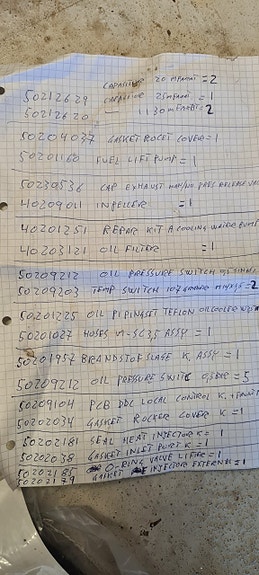 CAPASITOR 20 MFARAT = 2
50212629 CAPASITOR 25 MFARAT = 1
50212620 1130 MFARAT = 2
50204037 GASKET ROCET COVER = 1
50201160 FUEL LIFT PUMP = 1
50230536 CAP EXHAUST
40209011 INPELLER = 1
40201251 REPAIR KIT A COOLING WATER PUMP
40203121 OIL FILTER = 1
50209212 OIL PRESSURE SWITCH
50209203 TEMP SWITCH 107 = 2
50201225 OIL PIPINGSET TEFLON OILCOOLER
50201027 HOSES M-SC35 ASSY = 1
50201957 BRANDSTOFSLAGE K, ASSY = 1
50209212 OIL PRESSURE SWITC 0,3BAR = 5
50209104 PCB DDC LOCAL CONTROL K, +
50202034 GASKET ROCKER COVER K = 1
50202181 SEAL HEAT INJECTOR K = 1
50202038 GASKET INLET PORT K = 1
50202185 O-RING VALVE LIFTER = 1
50202179 GASKET INJECTOR EXTERNAL = 1